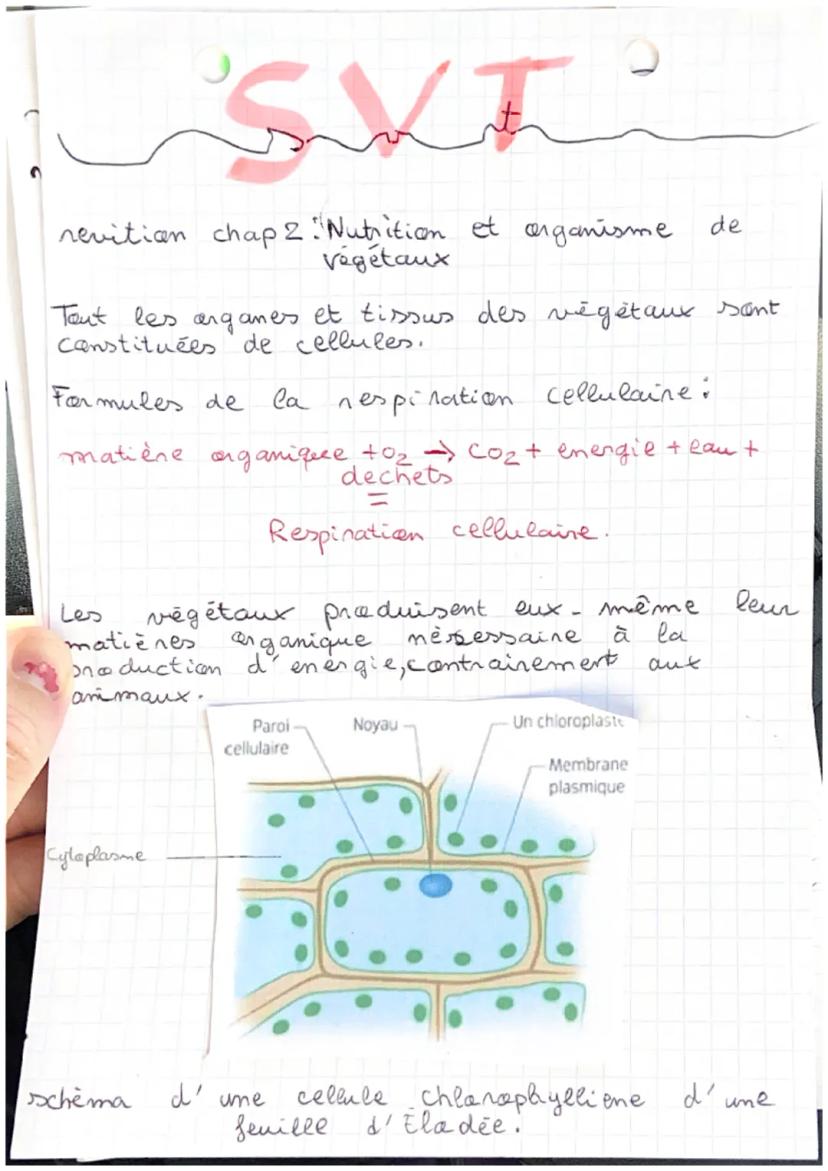 SVT
revition chap 2 : "Nutrition et organisme de
végétaux
Tout les organes et tissus des végétaux sont
constituées de cellules.
Formules de la respiration cellulaire :
matière organique + O2 → CO2 + energie + eau +
dechets
=
Respiration cellulaire.
Les végétaux produisent eux-même leur
matières organique nécessaire à la
production d'energie, contrairement aux
animaux.
Paroi cellulaire
Noyau
Un chloroplaste
Membrane plasmique
Cytoplasme
schèma d'une cellule chlorophylliene d'une
feuille d'Élodée.